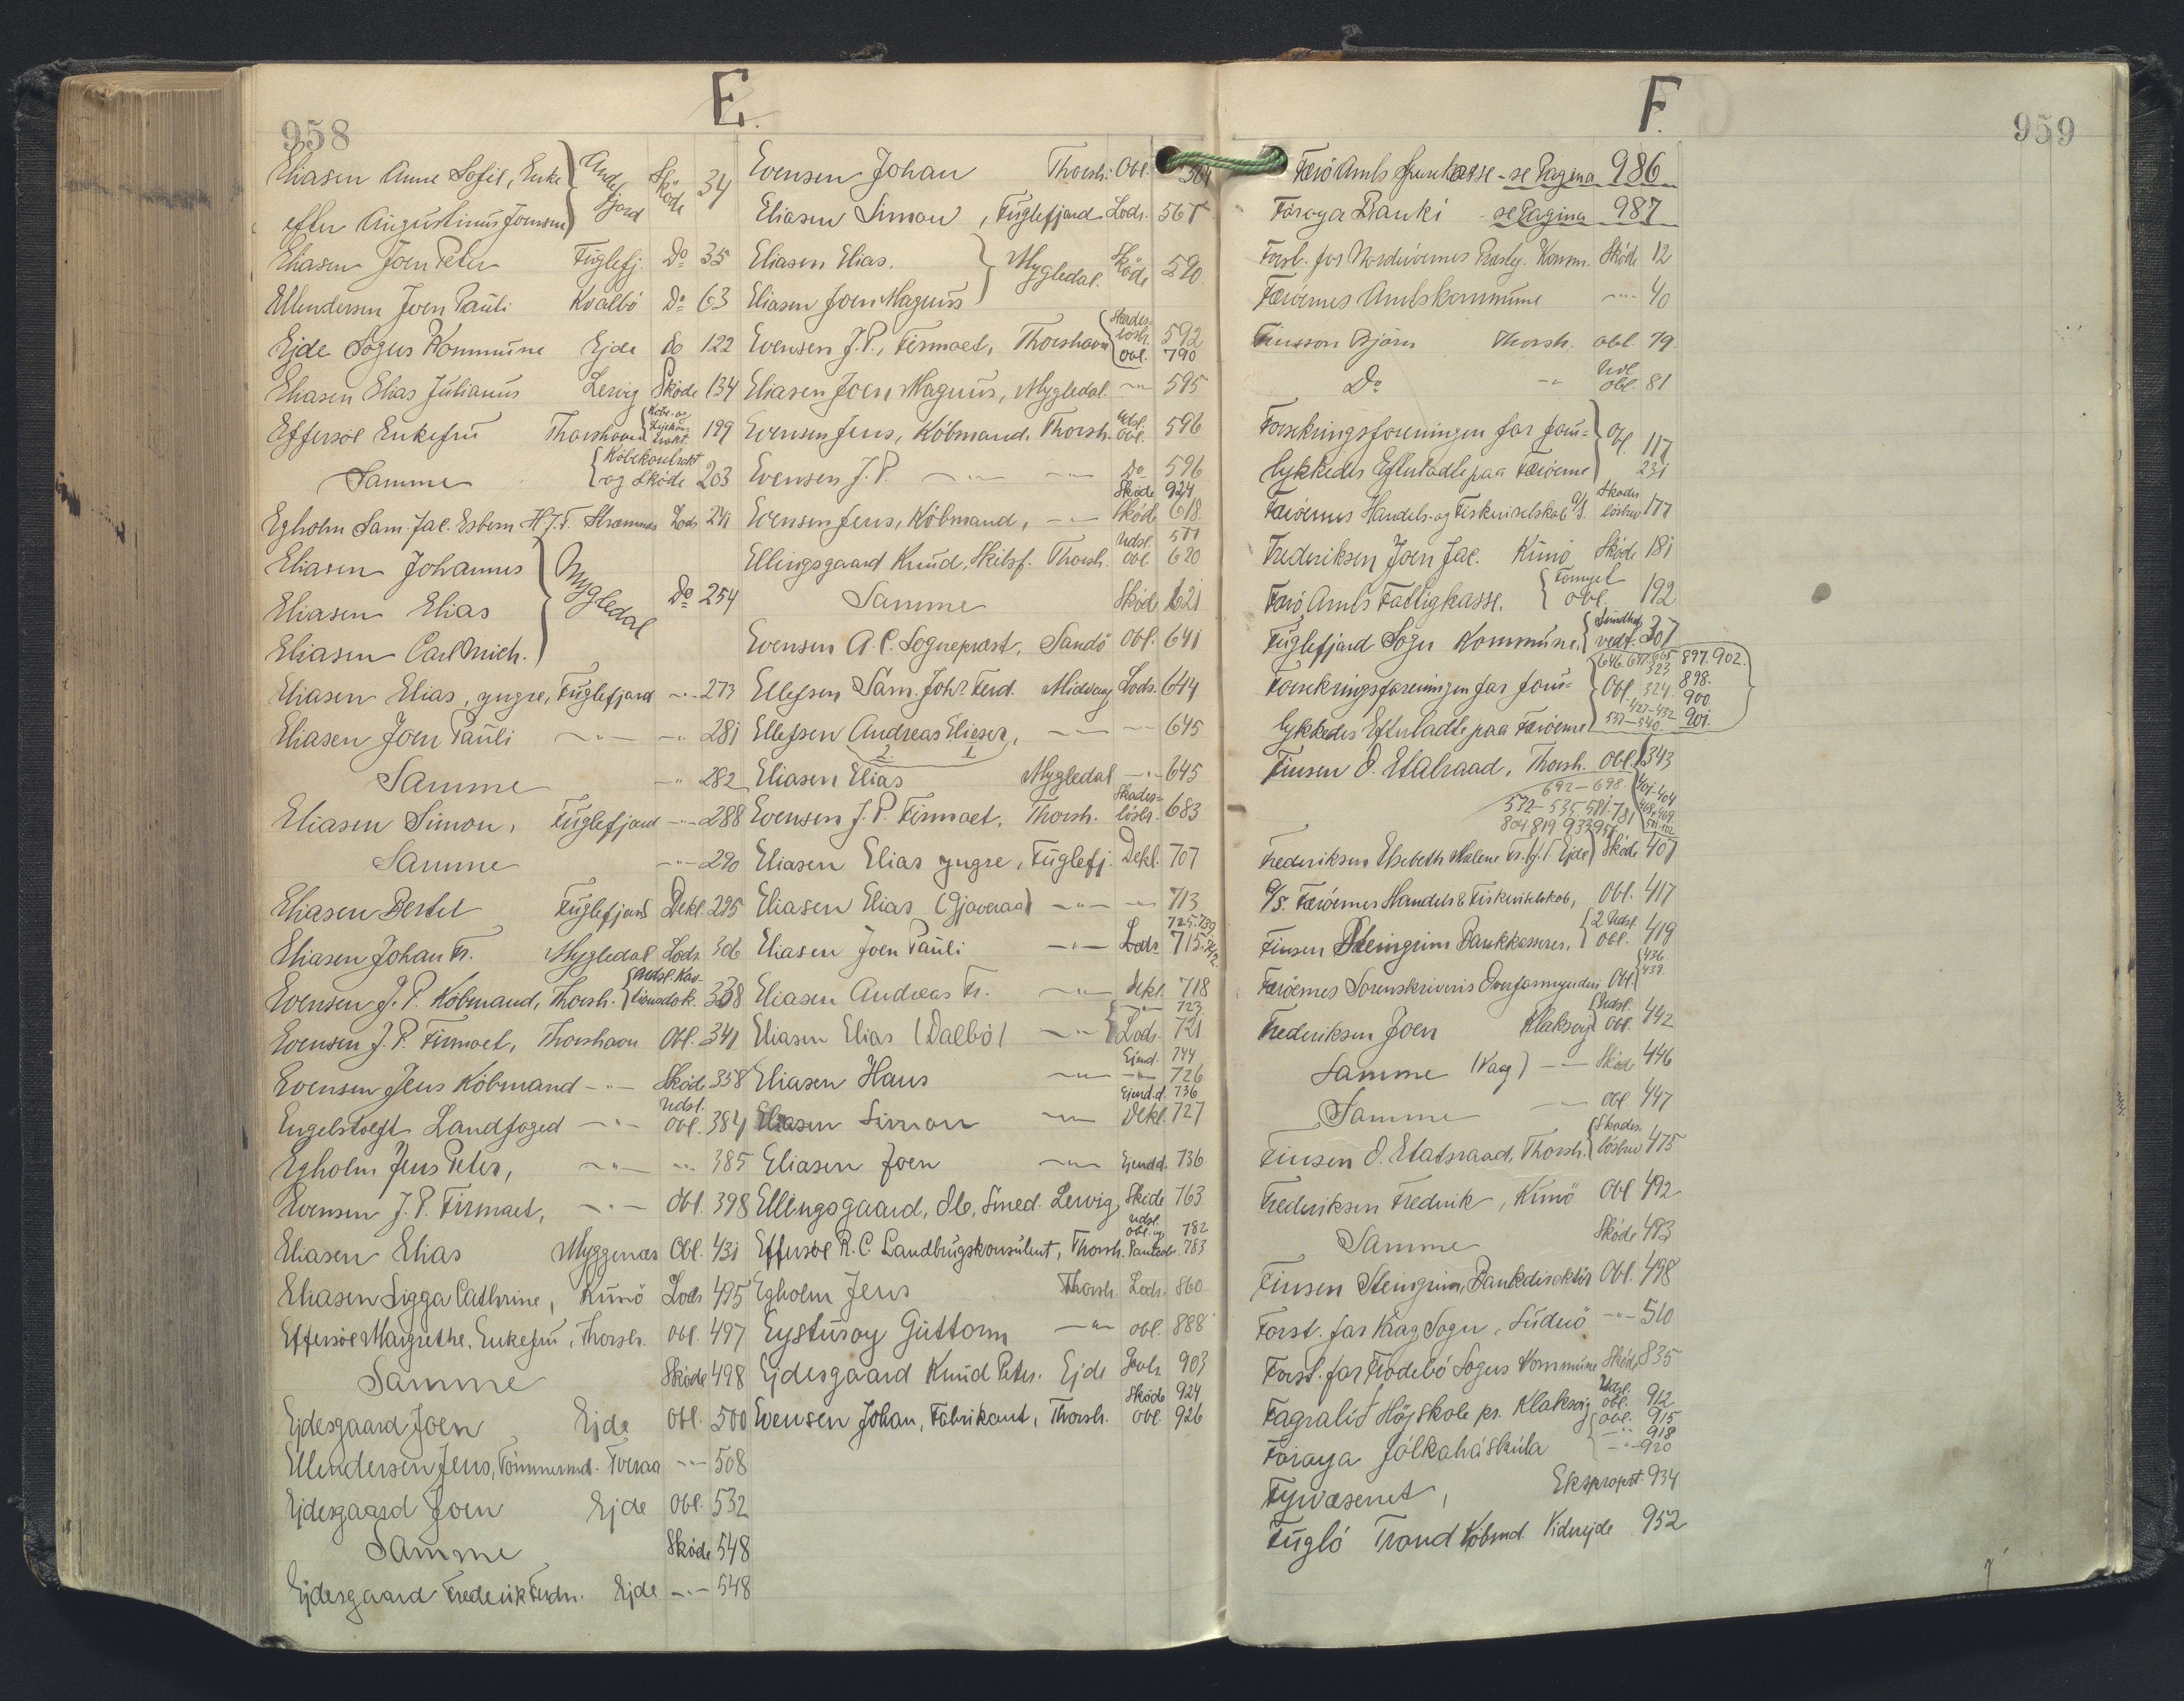 958
E.
Eliasen Anne Sofie, Enke
efter Augustinus Joensen } Andefjord Sköde 34
Eliasen Joen Peter Fuglefj. Do 35
Ellendersen Joen Pauli Kvalbö Do 63
Ejde Sogns Kommune Ejde do 122
Eliasen Elias Julianus Lervig Sköde 134
Effersöe Enkefru Thorshavn 199
Samme { Köbekontrakt og Sköde 203
Egholm Sam. Jac. Esbern H.J.F. Strømnes Lods. 241
Eliasen Johannes
Eliasen Elias } Mygledal Do 254
Eliasen Carl Mich.
Eliasen Elias, yngre, Fuglefjord -"- 273
Eliasen Joen Pauli -"- -"- 281
Samme -"- 282
Eliasen Simon, Fuglefjord -"- 288
Samme -"- 290
Eliasen Bertel Fuglefjord Dekl. 295
Eliasen Johan Fr. Mygledal Lods. 306
Evensen J. P. Köbmand, Thorsh. { Udsl. Kautionsdok. 338
Evensen J. P. Firmaet, Thorshavn Obl. 341
Evensen Jens Köbmand -"- Sköd. 358
Engelstoft Landfoged -"- Udsl. Obl. 384
Egholm Jens Peter, -"- -"- 385
Evensen J. P. Firmaet, -"- Obl. 398
Eliasen Elias Myggenæs Obl. 431
Eliasen Sigga Cathrine, Kunö Lods. 495
Effersöe Margrethe, Enkefru, Thorsh. Obl. 497
Samme Sköde 498
Ejdesgaard Joen Ejde Obl. 500
Ellendersen Jens, Tömmermd. Tveraa -"- 508
Ejdesgaard Joen Ejde Obl. 532
Samme Sköde 548
Ejdesgaard Frederik Ferdn. Ejde -"- 548
Evensen Johan Thorsh. Obl. 564
Eliasen Simon, Fuglefjord Lods. 567
Eliasen Elias.
Eliasen Joen Magnus } Mygledal. Sköde 590
Evensen J. P., Firmaet, Thorshavn { Skadeslösbr. 592 Obl. 790
Eliasen Joen Magnus, Mygledal -"- 595
Evensen Jens, Köbmand, Thorsh. Udsl. Obl. 596
Evensen J. P. -"- -"- Do 596
Sköde 924
Evensen Jens, Köbmand, -"- Sköd. 618
577
Ellingsgaard Knud, Skibsf. Thorsh. Udsl. Obl. 620
Samme Sköd. 621
Evensen A. C. Sognepræst, Sandö Obl. 641
Ellefsen Sam. Johs. Ferd. Midvaag Lods. 644
Ellefsen Andreas Elieser, -"- -"- 645
2 1
Eliasen Elias Mygledal -"- 645
Evensen J. P. Firmaet, Thorsh. Skadeslösbr. 683
Eliasen Elias yngre, Fuglefj. Dekl. 707
Eliasen Elias (Gjaveraa) -"- -"- 713
725. 739
Eliasen Joen Pauli -"- Lods. 715. 742
Eliasen Andreas Fr. -"- Dekl. 718
723
Eliasen Elias (Dalbö) -"- Lods. 721
Ejend. 744
Eliasen Hans -"- -"- 726
Ejendd. 736
Eliasen Simon -"- Dekl. 727
Eliasen Joen -"- Ejendd. 736
Ellingsgaard, Ol., Smed. Lervig, Sköde 763
Udsl. Obl. og 782
Effersöe R. C. Landbrugskonsulent, Thorsh. Panteobl. 783
Egholm Jens Thorsh. Lods. 860
Eysturoy Guttorm -"- Obl. 888
Ejdesgaard Knud Peter. Ejde 903
Sköde 924
Evensen Johan, Fabrikant, Thorsh. Obl. 926
F.
959
Færö Amts Sparekasse - se Pagina 986
Föroya Banki - se Pagina 987
Forst. for Nordreöernes Præstg. Komm. Sköde 12
Færöernes Amtskommune -"- 40
Finsson Björn Thorsh. Obl. 79
Do -"- Udsl. Obl. 81
Forsikringsforeningen for forulykkedes
Efterladte paa Færöerne } Obl. 117 231
Færöernes Handels- og Fiskeriselskab A/S. Skadeslösbrev 177
Frederiksen Joen Jac. Kunö Sköde 181
Færö Amts Fattigkasse. { Fornyet Obl. 192
Fuglefjord Sogns Kommune, { Sundhedsvedt. 307
646. 647. 665 897. 902.
Forsikringsforeningen for forulykkedes
Efterladte paa Færöerne { Obl. 323 324 427-432 537-540 898. 900. 901.
Finsen O. Etatsraad, Thorsh. Obl. 343
692-698 401-404
572-535 581 781 468, 469
804. 819. 933 951
Frederiksen Elsebeth Malene Fr. f. J. Ejde Sköde 407
A/S. Færöernes Handels & Fiskeriselskab, Obl. 417
Finsen Steingrim Bankkasserer, { 2 Udsl. Obl. 419
Færöernes Sorenskriveris Overformynderi Obl. { 436. 439.
Frederiksen Joen Klaksvig { Udsl. Obl. 442
Samme (Vaag) -"- Sköde 446
Samme -"- Obl. 447
Finsen O. Etatsraad, Thorsh. { Skadeslösbrev 475
Frederiksen Frederik, Kunö Obl. 492
Samme Sköde 493
Finsen Steingrim, Bankdirektör Obl. 498
Forst. for Vaag Sogn, Suderö -"- 510
Forst. for Frodebö Sogns Kommune Sköde 835
Fagralið Höjskole pr. Klaksvig Udsl. Obl. 912
Föroya Fólkaháskúla { Obl. 915 -"- 918 -"- 920
Fyrvæsenet, Ekspropr. 934
Fugló Trond Köbmd. Viderejde 952